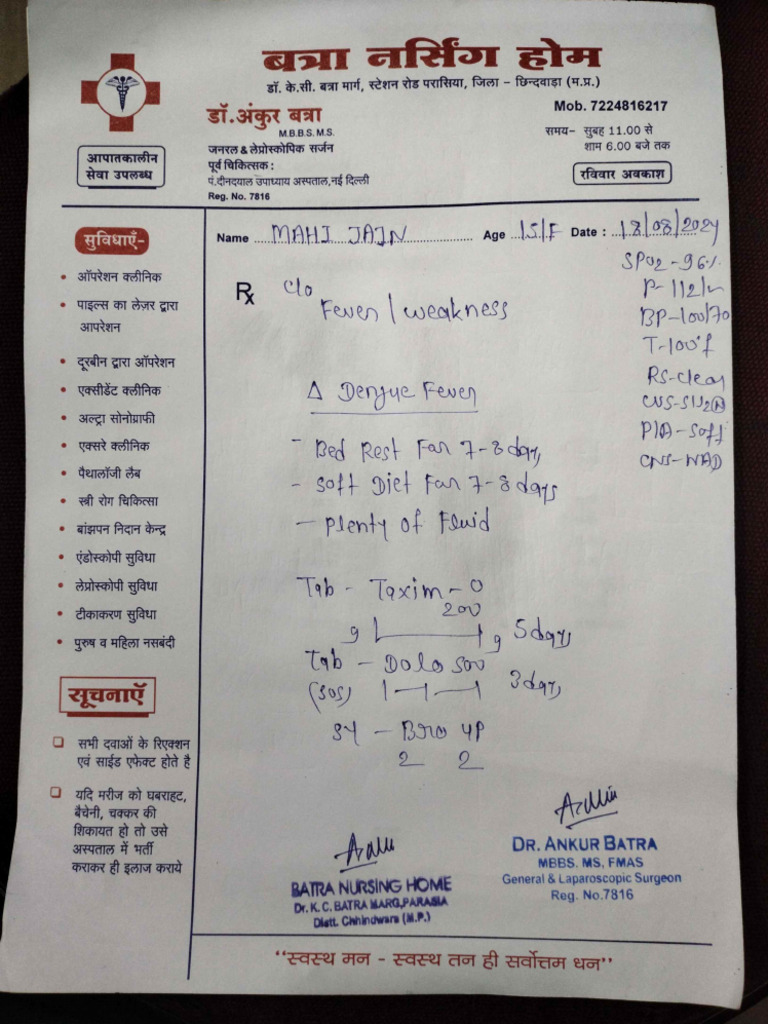 बत्रा नर्सिंग होम
डॉ. के.सी. बत्रा मार्ग, स्टेशन रोड परासिया, जिला – छिन्दवाड़ा (म.प्र.)
डॉ. अंकुर बत्रा
M.B.B.S. M.S.
जनरल & लेप्रोस्कोपिक सर्जन
पूर्व चिकित्सक :
पं.दीनदयाल उपाध्याय अस्पताल, नई दिल्ली
Reg. No. 7816
Mob. 7224816217
समय– सुबह 11.00 से
शाम 6.00 बजे तक
रविवार अवकाश
आपातकालीन
सेवा उपलब्ध
Name MAHI JAIN Age 15/F Date : 18/08/2024
SPO2 - 96%
P - 112/m
BP - 100/70
T - 100°f
RS - clear
CVS - S1S2 (N)
P/A - Soft
CNS - NAD
Rx
C/o
Fever / weakness
Δ Dengue Fever
- Bed Rest For 7-8 days
- Soft Diet For 7-8 days
- Plenty of Fluid
Tab - Taxim - O
200
5 days
Tab - Dolo 500
(SOS) 1-1-1 3 days
Sy -
2 2
सुविधाएँ-
ऑपरेशन क्लीनिक
पाइल्स का लेज़र द्वारा
आपरेशन
दूरबीन द्वारा ऑपरेशन
एक्सीडेंट क्लीनिक
अल्ट्रा सोनोग्राफी
एक्सरे क्लीनिक
पैथालॉजी लैब
स्त्री रोग चिकित्सा
बांझपन निदान केन्द्र
एंडोस्कोपी सुविधा
लेप्रोस्कोपी सुविधा
टीकाकरण सुविधा
पुरुष व महिला नसबंदी
सूचनाएँ
सभी दवाओं के रिएक्शन
एवं साईड एफेक्ट होते है
यदि मरीज को घबराहट,
बैचेनी, चक्कर की
शिकायत हो तो उसे
अस्पताल में भर्ती
कराकर ही इलाज कराये
BATRA NURSING HOME
Dr. K. C. BATRA MARG, PARASIA
Distt. Chhindwara (M.P.)
DR. ANKUR BATRA
MBBS. MS, FMAS
General & Laparoscopic Surgeon
Reg. No.7816
“स्वस्थ मन - स्वस्थ तन ही सर्वोत्तम धन”